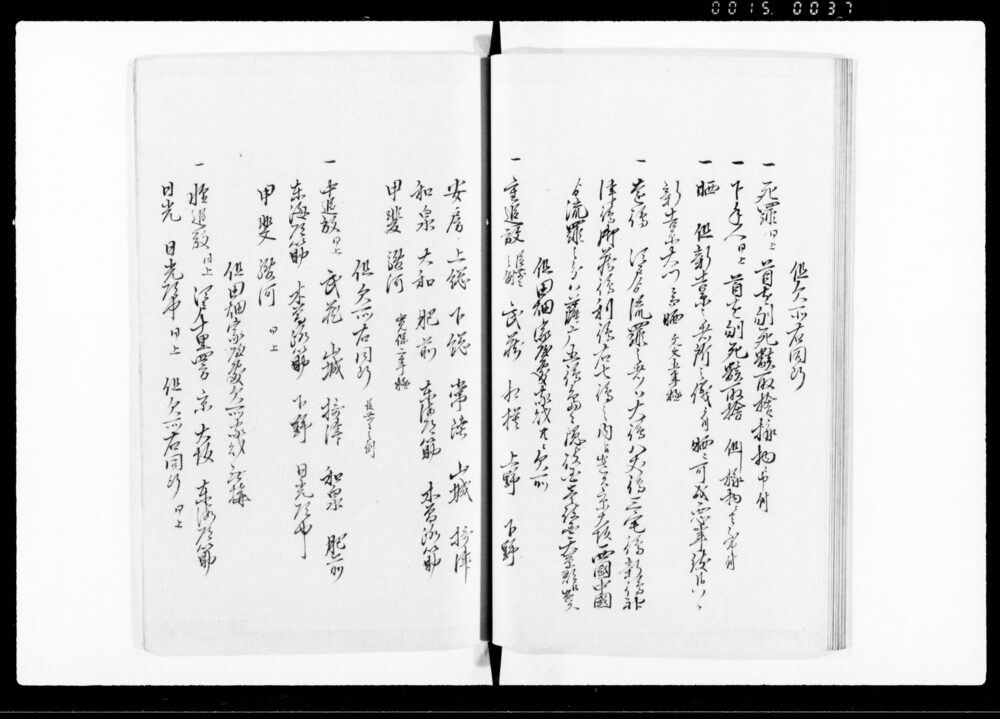 0015 0037
但欠所右同断
一 死罪 同上 首を刎死骸取捨様物ニ申付
一 下手人 同上 首を刎死骸取捨 但様物ニ
一 晒 但新吉原之者所之儀ニ付晒ニ可成
新吉原大門ニ而晒
一 遠嶋 江戸より流罪之者ハ大嶋八丈嶋三宅嶋新嶋神
津嶋御蔵嶋利嶋右七嶋之内 京大坂西國中國
より流罪之分ハ薩广五嶋
但田畑家屋敷家財共ニ欠所
一 重追放 武蔵 相模 上野 下野
安房 上総 下総 常陸 山城 摂津
和泉 大和 肥前 東海道筋 木曽路筋
甲斐 駿河 寛保二年極
但欠所右同断
一 中追放 同上 武蔵 山城 摂津 和泉 肥前
東海道筋 木曽路筋 下野 日光道中
甲斐 駿河 同上
但田畑家屋敷欠所家財無構
一 軽追放 同上 江戸十里四方 京 大坂 東海道筋
日光 日光道中 同上 但欠所右同断 同上